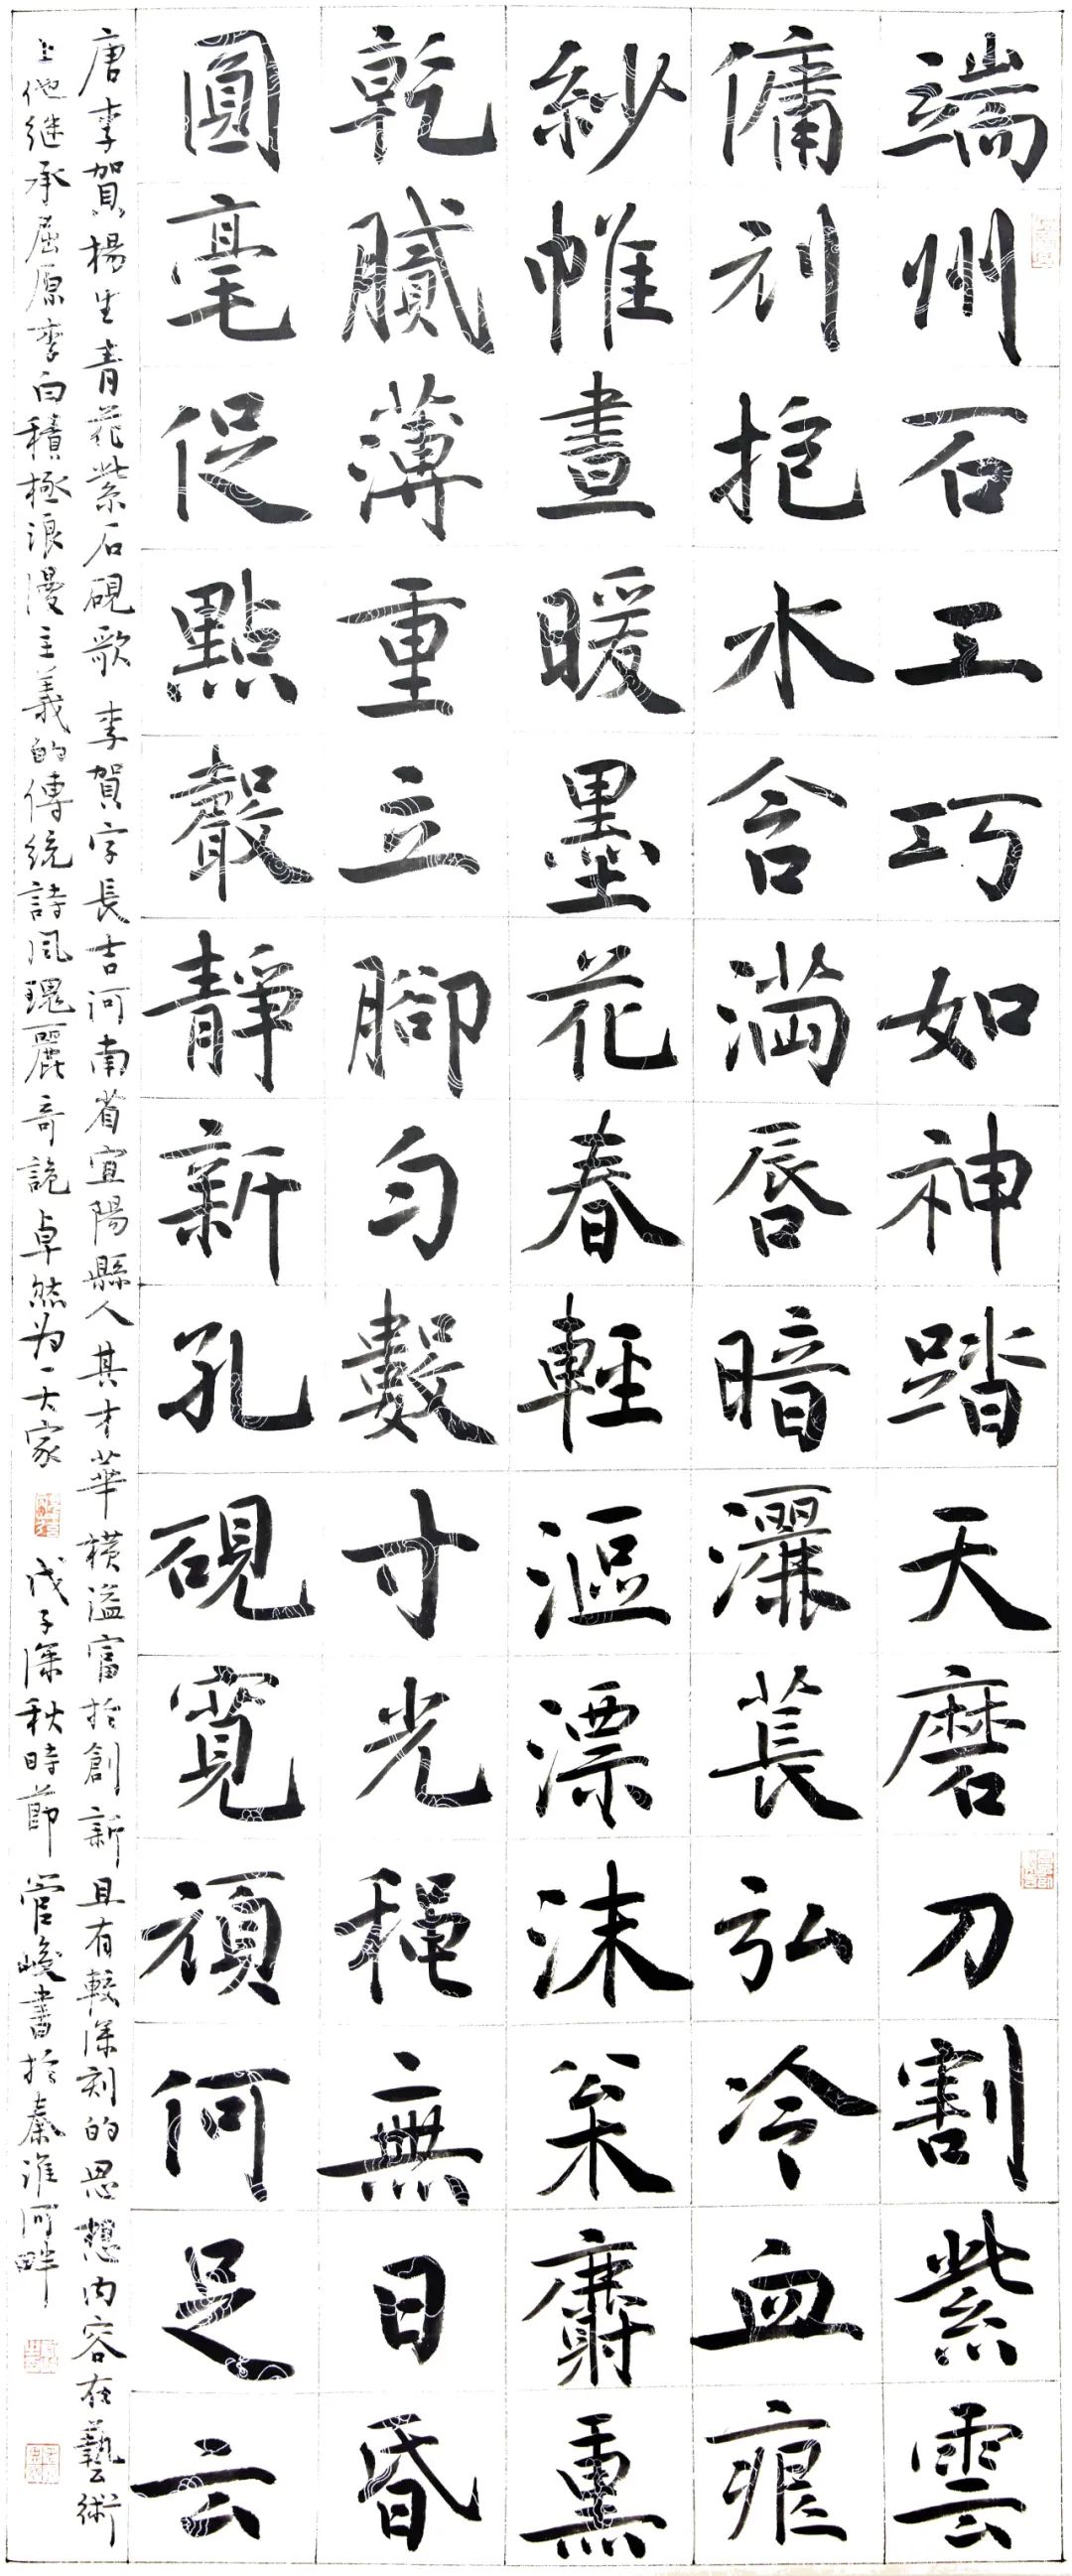 端州石工巧如神踏天磨刀割紫雲
傭刓抱水含滿唇暗灑萇弘冷血痕
紗帷晝暖墨花春輕漚漂沫松麝熏
乾膩薄重立腳勻數寸光秋無日昏
圓毫促點聲靜新孔硯寬頑何足云
唐李賀楊生青花紫石硯歌 李賀字長吉河南省宜陽縣人其才華横溢富於創新且有較深刻的思想内容在藝術
上他继承屈原李白積極浪漫主義的傳統詩風瑰麗奇詭卓然为一大家 戊子深秋時節 管峻書於秦淮河畔